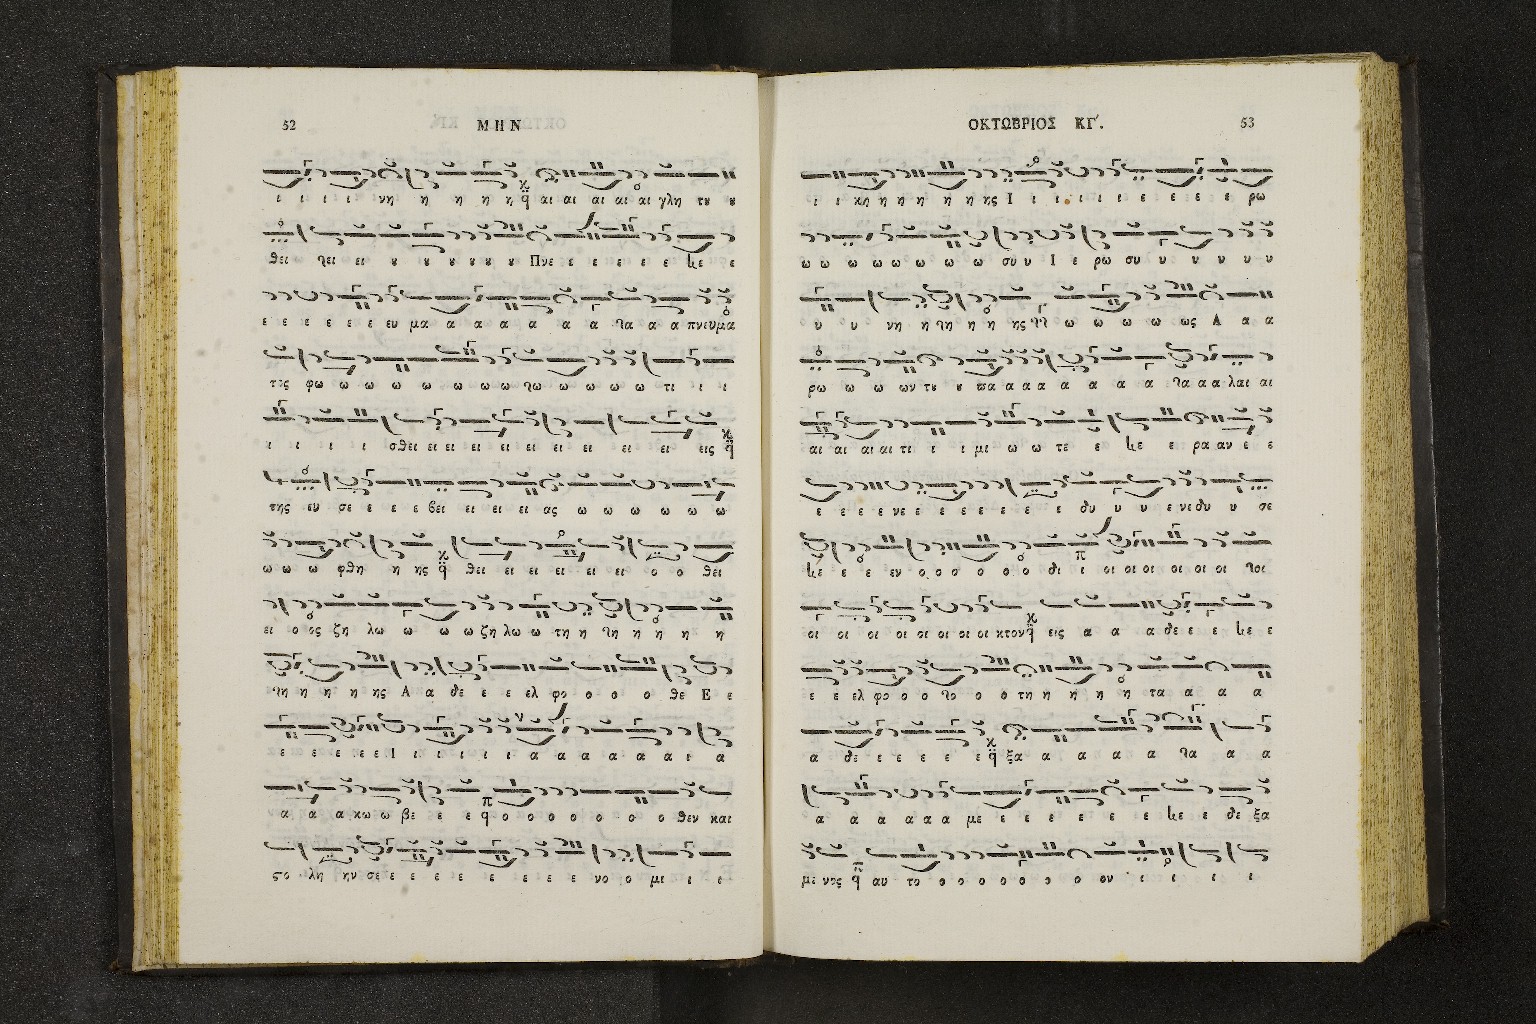 52 ΜΗΝ
ι ι ι ι νη η η η η αι αι αι αι αι γλη τȣ ȣ
θει σει ει ȣ ȣ ȣ ȣ ȣ ȣ Πνε ε ε ε ε ε ε
ε ε ε ε ε ε ευ μα α α α α α α α α πνευμα
τος φω ω ω ω ω ω ω ω ω ω ω ω ω τι ι ι
ι ι ι ι ι σθει ει ει ει ει ει ει ει ει ει ει εις
της ευ σε ε ε ε βει ει ει ει ει ας ω ω ω ω ω ω
ω ω ω φθη η ης θει ει ει ει ει ει ο ο θει
ει ο ος ζη λω ω ω ω ζη λω ω τη η η η η η η
η η η η ης Α α δε ε ε ελ φο ο ο ο ο θε Ε ε
ε ε ε ε ε Ι ι ι ι ι ι α α α α α α α α
α α α κω ω βε ε ε ο ο ο ο ο ο ο θεν και
ςο λη ην σε ε ε ε ε ε ε ε ε νο ο μι ι ι
ΟΚΤΩΒΡΙΟΣ ΚΓ΄. 53
ι ι κη η η η η η ης Ι ι ι ι ι ι ε ε ε ε ε ρω
ω ω ω ω ω ω ω ω συ υ Ι ε ρω συ υ υ υ υ υ υ
υ υ νη η η η η ης ω ω ω ω ω ως Α α α
ρω ω ω ων τȣ ȣ πα α α α α α α α α α λαι αι
αι αι αι αι τι ι ι μι ω ω τε ε ε ρα αν ε ε
ε ε ε ε νε ε ε ε ε ε ε ε δυ υ υ υ ε νεδυ υ σε
ε ε εν ο ο ο ο ο ο δι ι οι οι οι οι οι οι
οι οι οι οι οι οι οι οι κτον εις α α α α δε ε ε ε
ε ε ελ φο ο ο ο ο τη η η η η τα α α α
α δε ε ε ε ε ε ξα α α α α α α α
α α α α α α με ε ε ε ε ε ε ε ε δε ξα
με νος αυ το ο ο ο ο ο ο ο ον ι ι ι ι